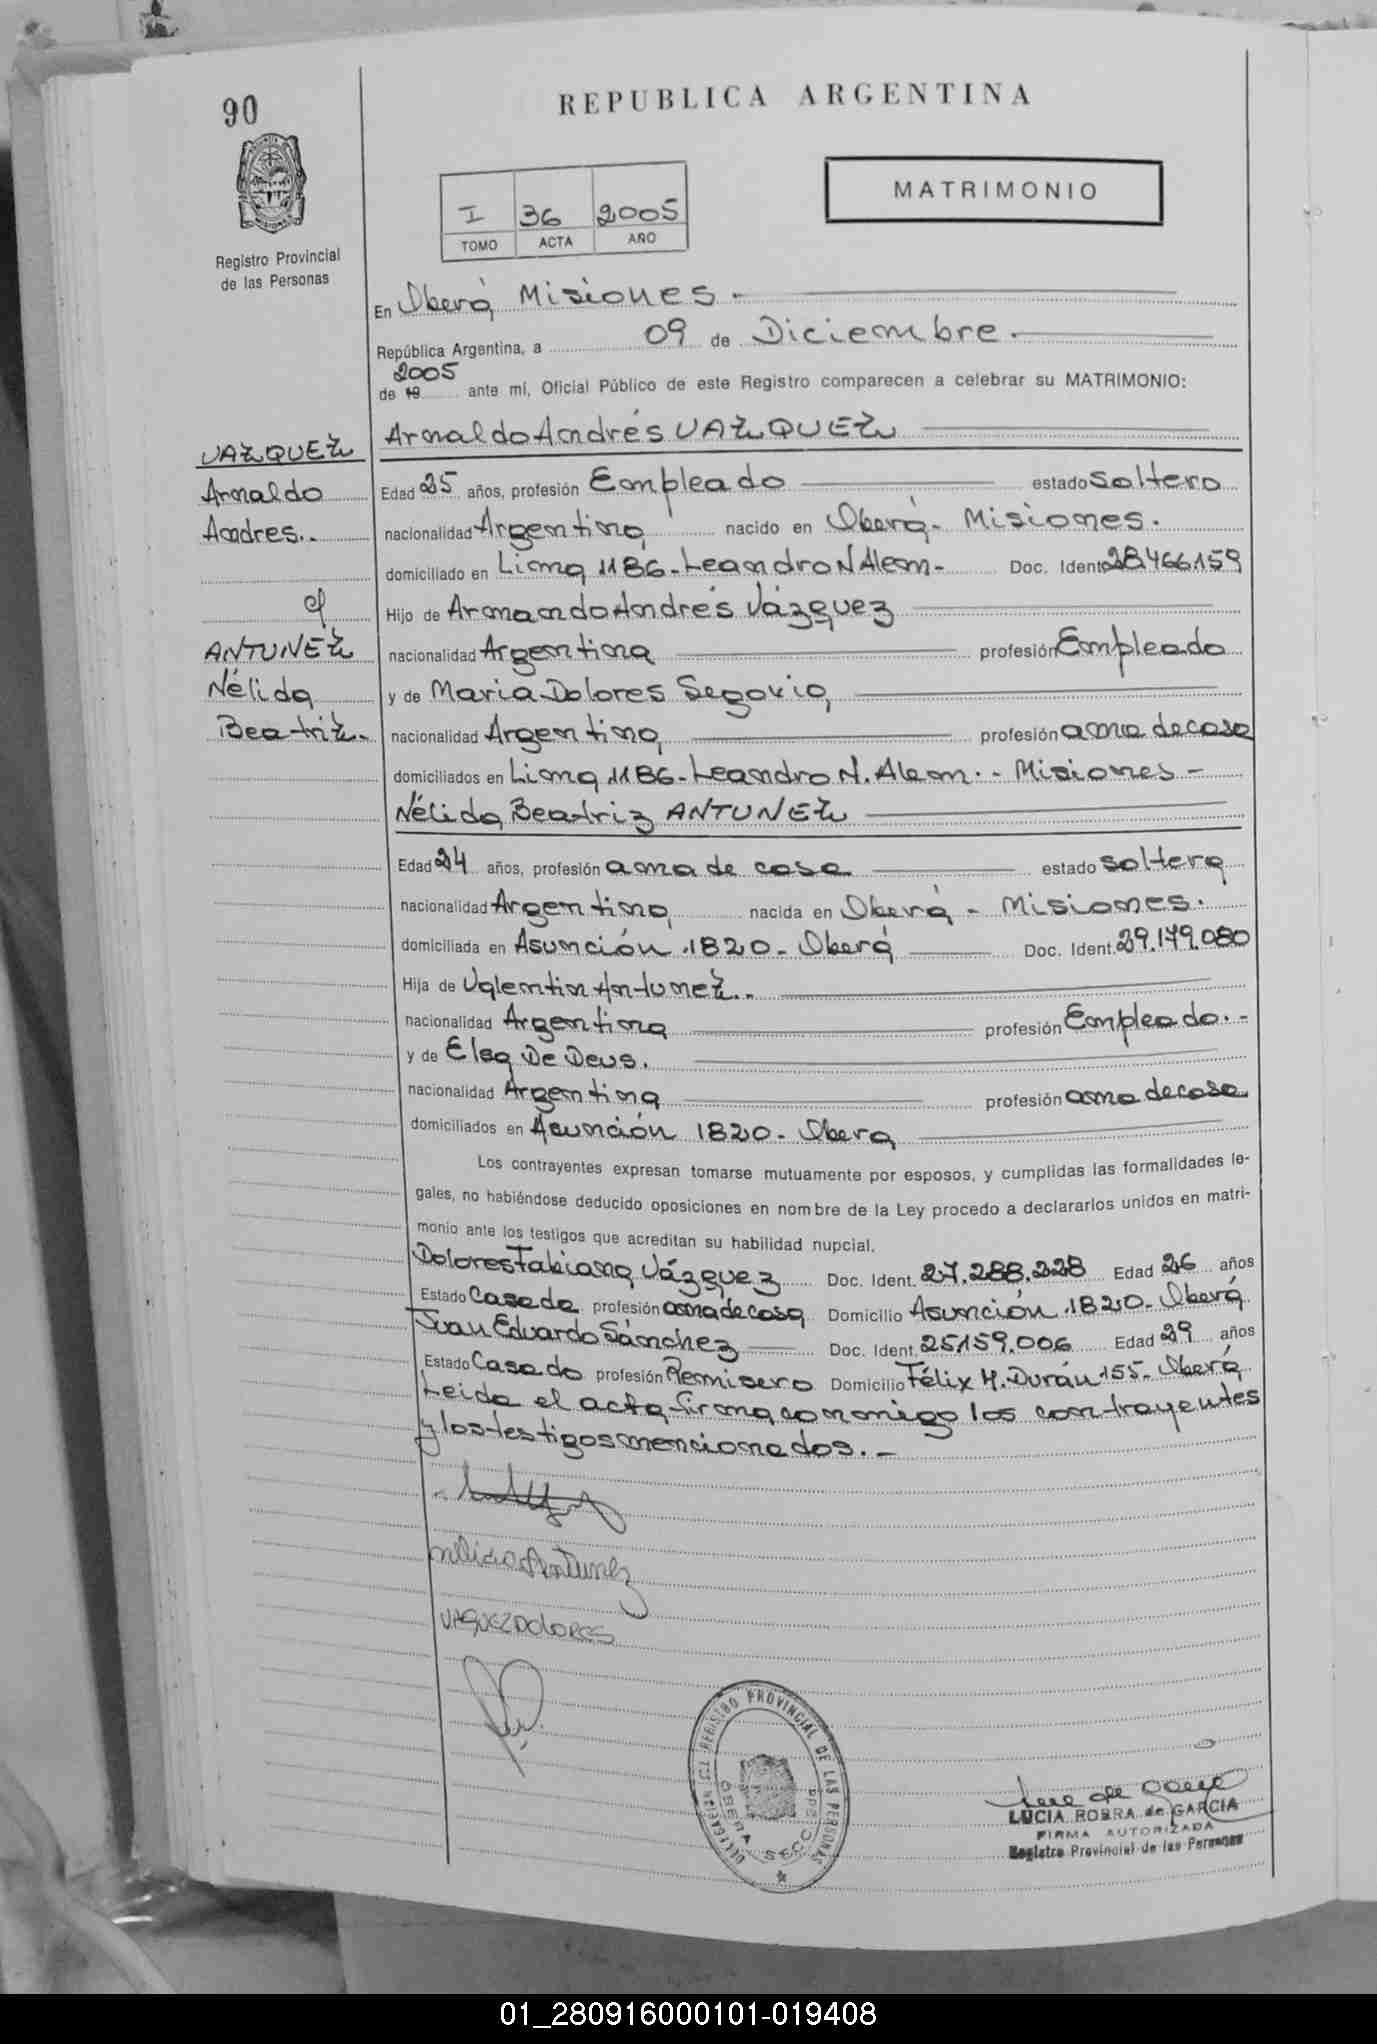 90
REPUBLICA ARGENTINA
Registro Provincial
de las Personas
I 36 2005
TOMO ACTA AÑO
MATRIMONIO
En Oberá, Misiones.-
República Argentina, a 09 de Diciembre.
2005
de 19 ante mí, Oficial Público de este Registro comparecen a celebrar su MATRIMONIO:
VAZQUEZ
Arnaldo
Andres.-
c/
ANTUNEZ
Nélida
Beatriz.-
Arnaldo Andrés VAZQUEZ
Edad 25 años, profesión Empleado estado Soltero
nacionalidad Argentina nacido en Oberá - Misiones.
domiciliado en Lima 1186 - Leandro N Alem - Doc. Ident. 28.466.159
Hijo de Armando Andrés Vázquez
nacionalidad Argentina profesión Empleado
y de Maria Dolores Segovia
nacionalidad Argentina profesión ama de casa
domiciliados en Lima 1186 - Leandro N. Alem. - Misiones -
Nélida Beatriz ANTUNEZ
Edad 24 años, profesión ama de casa estado soltera
nacionalidad Argentina nacida en Oberá - Misiones.
domiciliada en Asunción 1820 - Oberá Doc. Ident. 29.179.080
Hija de Valentin Antunez.-
nacionalidad Argentina profesión Empleado.-
y de Elsa De Deus.
nacionalidad Argentina profesión ama de casa
domiciliados en Asunción 1820 - Obera
Los contrayentes expresan tomarse mutuamente por esposos, y cumplidas las formalidades le-
gales, no habiéndose deducido oposiciones en nombre de la Ley procedo a declararlos unidos en matri-
monio ante los testigos que acreditan su habilidad nupcial.
Dolores Fabiana Vázquez Doc. Ident. 27.288.228 Edad 26 años
Estado Casada profesión ama de casa Domicilio Asunción 1820 - Oberá
Juan Eduardo Sánchez Doc. Ident. 25.159.006 Edad 29 años
Estado Casado profesión Remisero Domicilio Félix H. Durán 155 - Oberá
Leida el acta firma conmigo los contrayentes
y los testigos mencionados.-
Antunez
VAZQUEZ DOLORES
DELEGACION REGISTRO PROVINCIAL DE LAS PERSONAS
OBERA SECC.
LUCIA ROBRA de GARCIA
FIRMA AUTORIZADA
Registro Provincial de las Personas
01_280916000101-019408